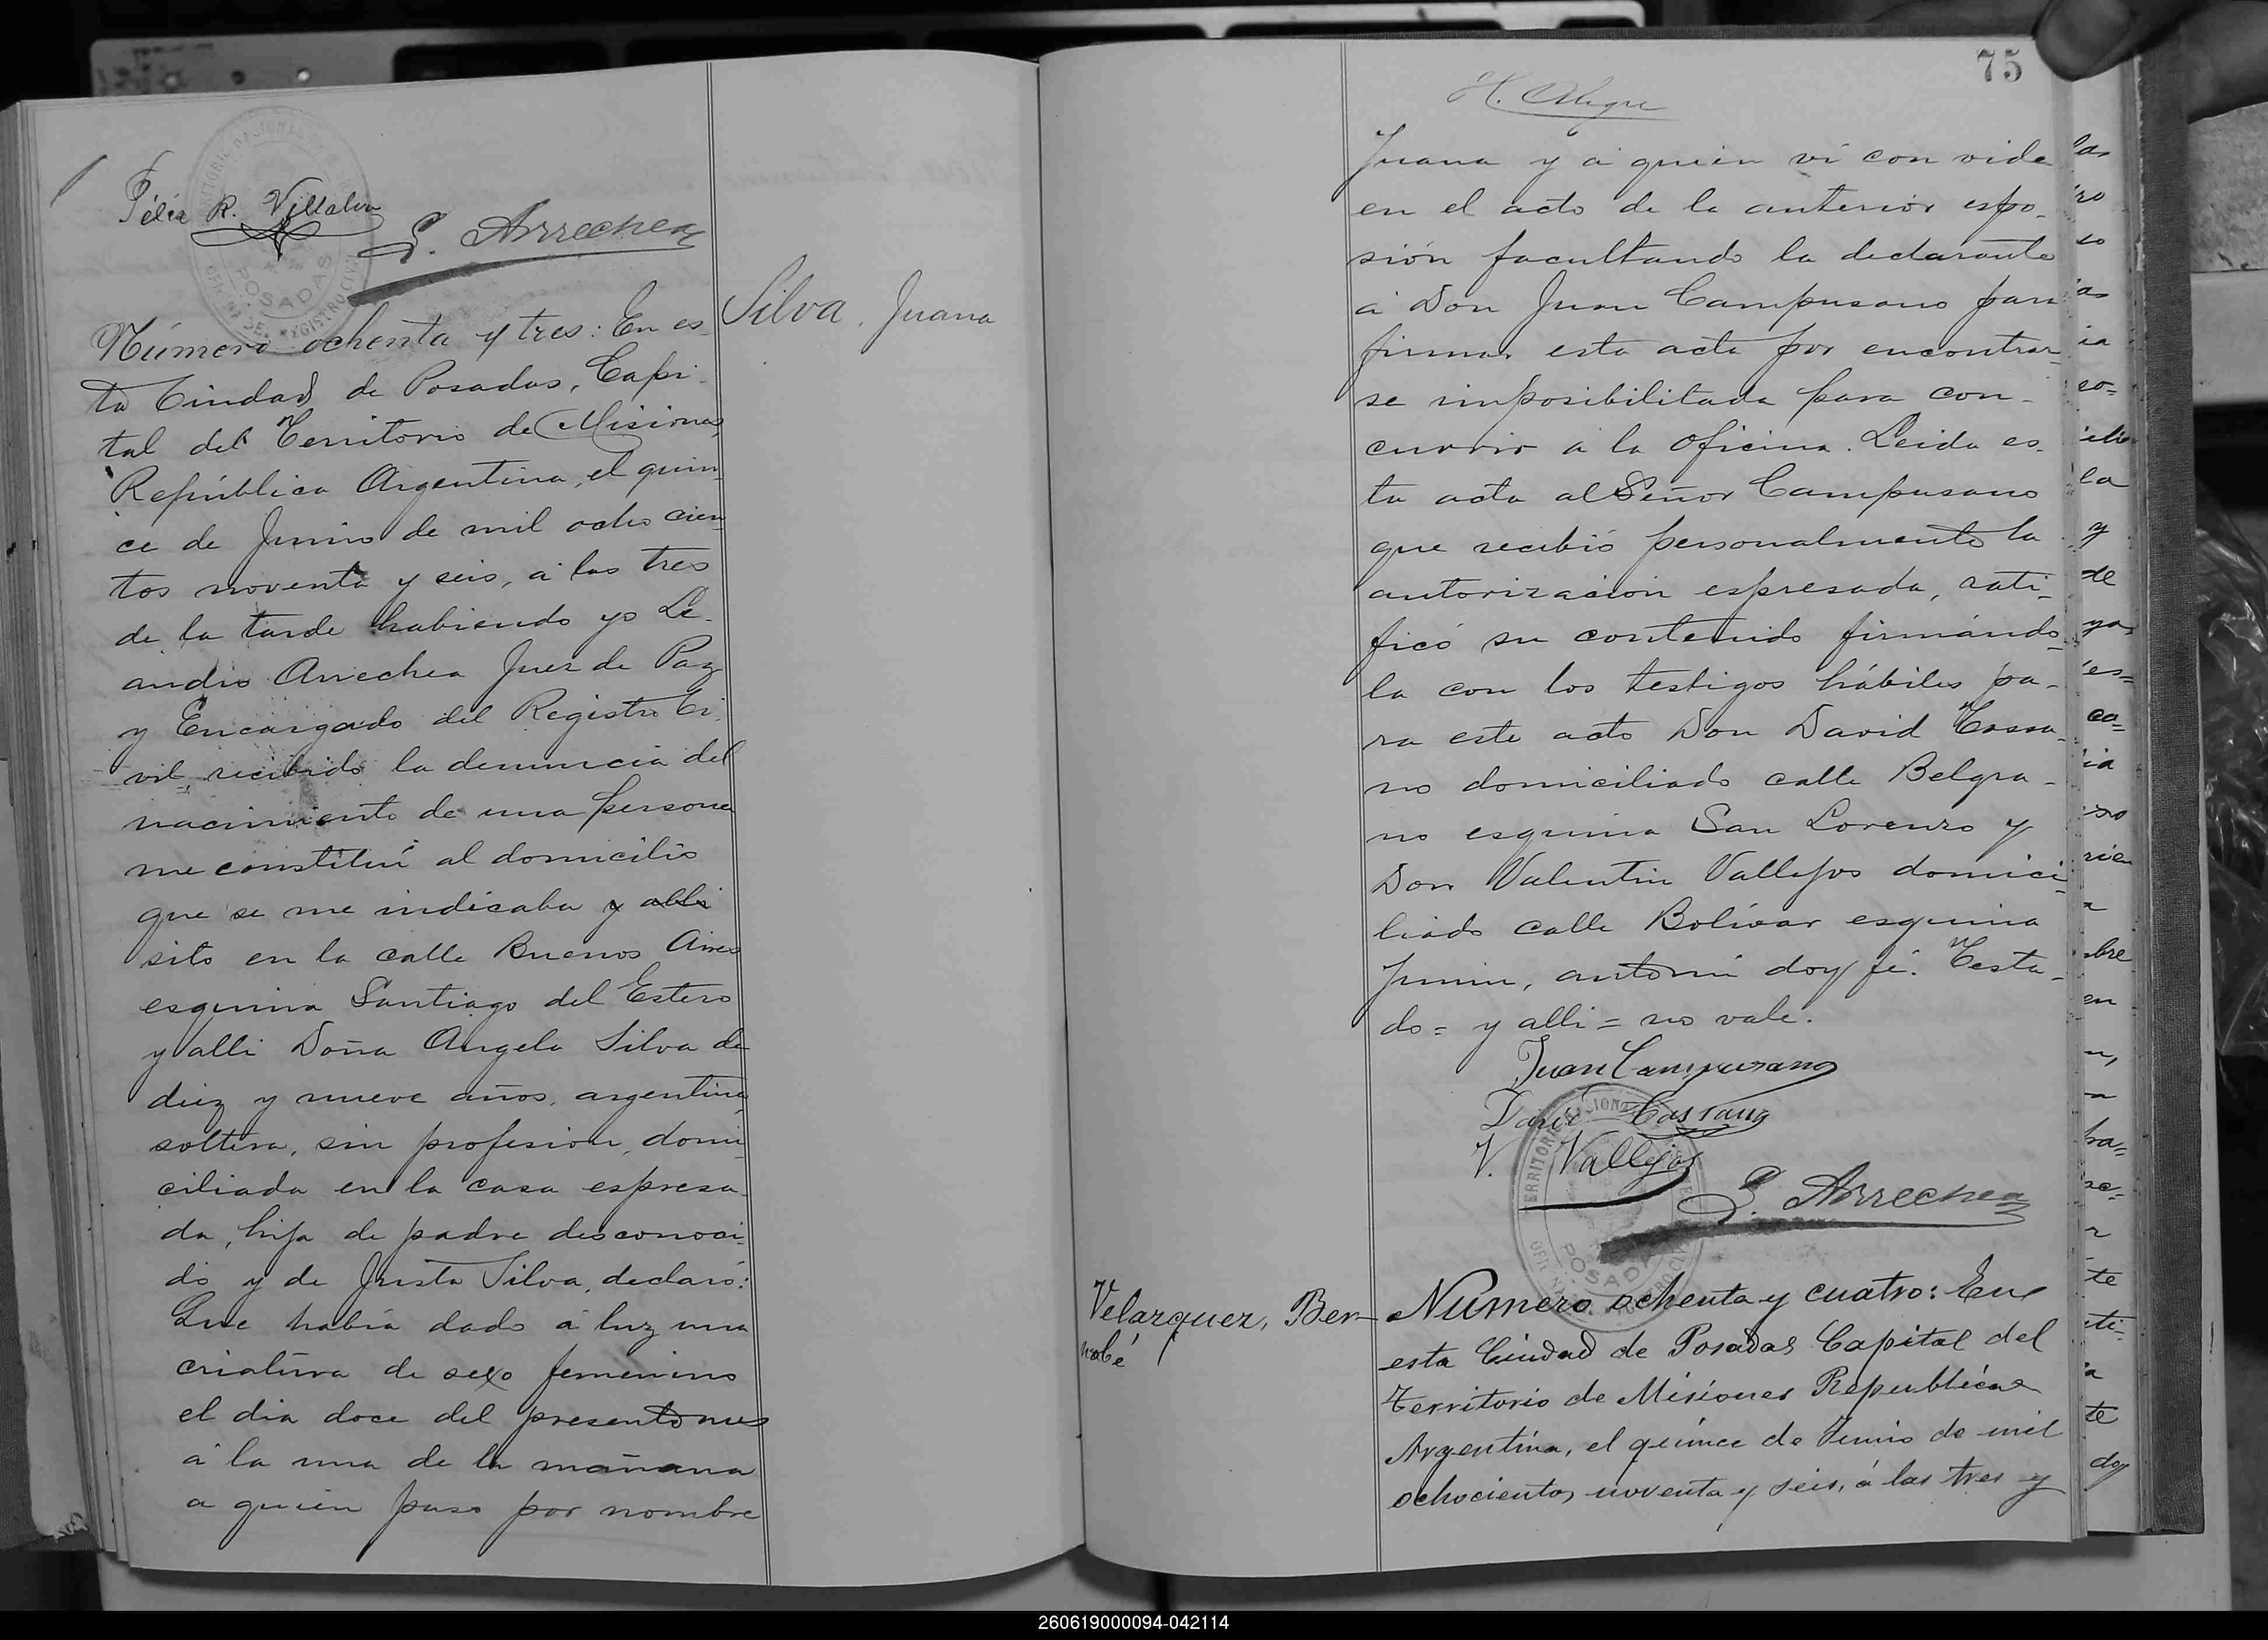 Félix R. Villalba
L. Arrechea
Silva, Juana
Número ochenta y tres: En es-
ta Ciudad de Posadas, Capi-
tal del Territorio de Misiones,
República Argentina, el quin-
ce de Junio de mil ocho cien-
tos noventa y seis, á las tres
de la tarde habiendo yo Le-
andro Arrechea Juez de Paz
y Encargado del Registro Ci-
vil, recibido la denuncia del
nacimiento de una persona
me constituí al domicilio
que se me indicaba y alli
sito en la calle Buenos Aires
esquina Santiago del Estero
y alli Doña Angela Silva de
diez y nueve años, argentina,
soltera, sin profesion, domi-
ciliada en la casa espresa-
da, hija de padre desconoci-
do y de Justa Silva, declaró:
Que habia dado á luz una
criatura de sexo femenino
el dia doce del presente mes
á la una de la mañana
a quien puso por nombre
75
H. Alegre
Juana y á quien ví con vida
en el acto de la anterior espo-
sión facultando la declarante
á Don Juan Campusano para
firmar esta acta por encontrar-
se imposibilitada para con-
currir á la oficina. Leida es-
ta acta al Señor Campusano
que recibió personalmente la
autorizacion espresada, rati-
ficó su contenido firmándo-
la con los testigos hábiles pa-
ra este acto Don David Cossa-
no domiciliado calle Belgra-
no esquina San Lorenzo y
Don Valentin Vallejos domici-
liado calle Bolívar esquina
Junin, antemí doy fé. Testa-
do = y alli = no vale.
Juan Campusano
David Cassano
V. Vallejos
L. Arrechea
Velazquez, Ber-
nabé
Número ochenta y cuatro: En
esta Ciudad de Posadas Capital del
Territorio de Misiones República
Argentina, el quince de Junio de mil
ochocientos noventa y seis, á las tres y
260619000094-042114